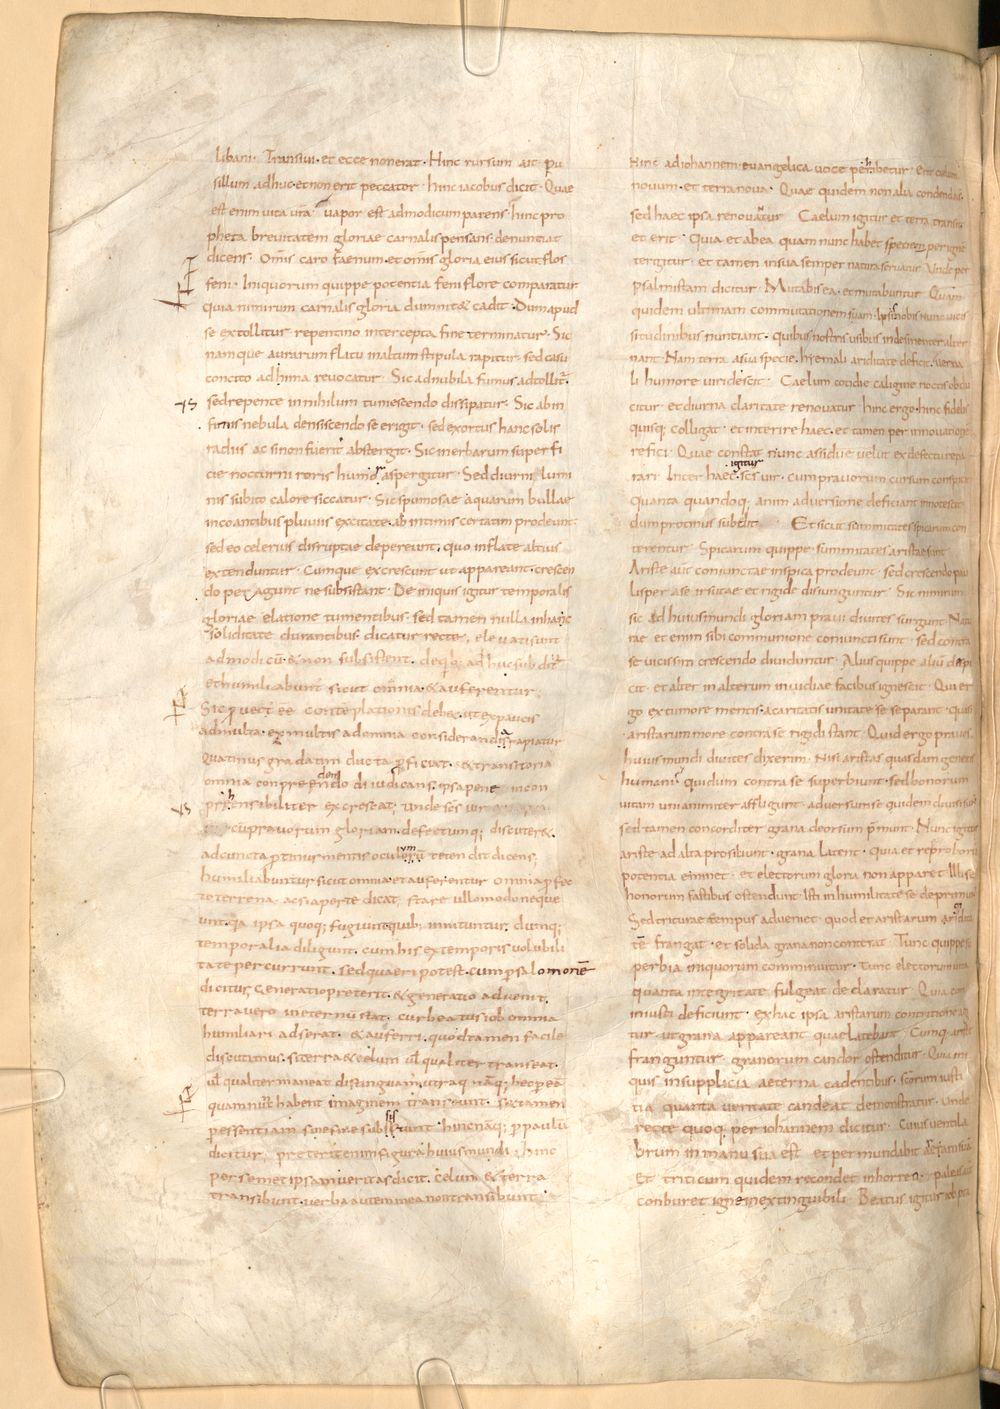 libani· Transivi· et ecce non erat· Hinc rursum ait· pu
sillum adhuc· et non erit peccator· hinc iacobus dicit· Quae
est enim vita vr̄a· vapor est ad modicum parens· hinc pro
pheta brevitatem gloriae carnalis pensans· denuntiat
dicens· Om̄is caro faenum· et om̄is gloria eius sicut flos
feni· Iniquorum quippe potentia feni flore comparatur
quia nimirum carnalis gloria dum nitet cadit· Dum apud
se extollitur repentino intercepta fine terminatur· Sic
namque aurarum flatu in altum stipula rapitur· sed casu
concito ad hima revocatur· Sic ad nubila fumus adtollit̄·
sed repente in nihilum tumescendo dissipatur· Sic ab in
fimis nebula densiscendo se erigit· sed exortus hanc solis
radius ac si non fuerit abstergit· Sic in erbarum superfi
cie nocturni roris humor aspergitur· Sed diurni lumi
nis subito calore siccatur· Sic spumosae aquarum bullae
incoantibus pluviis excitate· ab intimis certatim prodeunt·
sed eo celerius disruptae depereunt· quo inflate altius
extenduntur· Cumque excrescunt ut appareant· crescen
do per agunt ne subsistant· De iniquis igitur temporalis
gloriae elatione tumentibus· sed tamen nulla inhanc
soliditate durantibus· dicatur recte· elevati sunt
ad modicū· & non subsistent· de quib; adhuc subdit̄
et humiliabuntur sicut omnia· & auferentur·
Sic ꝓvecti eē contēplationis debet· ut ex paucis
ad multa· ex multis ad omnia considerandis rapiatur
Quatinus gradatim ducta ꝓficiat· & transitoria
omnia conprehendendo diiudicans· ipsa pene incon
prehensibiliter excrescat; Unde scs̄ vir
cū pravorum gloriam· defectumq; discuteret·
ad cuncta ꝓtinus mentis oculum tetendit dicens;
humiliabuntur sicut omnia· et auferentur omnia ꝓfec
to terrena· ac si aperte dicat· stare ullo modo neque
unt· q̄a ipsa quoq; fugiunt quib; innituntur· dumq;
temporalia diligunt· cum his ex temporis volubili
tate percurrunt· sed quaeri potest· cum ꝑ salomonē
dicitur; Generatio preterit· & generatio advenit·
terra vero in eternū stat· cur beatus iob omnia
humiliari adserat· & auferri· quod tamen facile
discutimus· si terra & celum vl̄ qualiter transeat·
vl̄ qualiter maneat distinguam̄· utraq; nāq; hec ꝑ eā
quam nunc habent imaginem transeunt· sed tamen
ꝑ essentiam sine fine subsistunt· hinc nāq; ꝑ paulū
dicitur; preterit enim figura huius mundi· hinc
per semet ipsam veritas dicit· celum & terra
transibunt· verba autem mea non transibunt·
Hinc ad iohannem· evangelica voce perhibetur· Erit caelum
novum· et terra nova· Quae quidem non alia condenda
sed haec ipsa renovantur Caelum igitur et terra transit
et erit· Quia et ab ea quam nunc habet speciem per igne
tergitur· et tamen in sua semper natura servatur· Unde per
psalmistam dicitur· Mutabis ea· et mutabuntur Quam
quidem ultimam commutationem suam· ipsi nobis nunc vicis
situdinibus nuntiant· quibus nostris usibus indesinenter alter
nant· Nam terra a sua specie· hyemali ariditate deficit· verna
li humore viridescit· Caelum cotidie caligine noctis obdu
citur· et diurna claritate renovatur hinc ergo· hinc fidelis
quisq; colligat· et interire haec· et tamen per innovationem
refici· Quae constat nunc assidue velut ex defectu repa
rari· Inter haec igitur scs̄ vir· cum pravorum cursum conspicit
Quanta quandoq; anim adversione deficiant innotescit
dum protinus subdit Et sicut summitates spicarum con
terentur Spicarum quippe summitates aristae sunt
Ariste aūt coniunctae in spica prodeunt· sed crescendo pau
lisper a se irsutae et rigide disiunguntur· Sic nimirum
sic ad huius mundi gloriam pravi divites surgunt Natu
rae et enim sibi communione coniuncti sunt· sed contra
se vicissim crescendo dividuntur· Alius quippe aliū despi
cit· et alter in alterum invidiae facibus ignescit· Qui er
go ex tumore mentis· a caritatis unitate se separant· Quasi
aristarum more contra se rigidi stant· Quid ergo pravos
huius mundi divites dixerim· Nisi aristas quasdam generis
humani· qui dum contra se superbiunt· sed bonorum
vitam unianimiter affligunt adversum se quidem divisi sunt
sed tamen concorditer grana deorsum p̄munt· Nunc igitur
ariste ad alta prosiliunt· grana latent· Quia et reproborum
potentia eminet· et electorum gloria non apparet· Illi se
honorum fastibus ostendunt· Isti in humilitate se deprimunt
Sed triturae tempus adveniet· quod et aristarum rigidita
tē frangat· et solida grana non conterat Tunc quippe su
perbia iniquorum comminuitur· Tunc electorum vita
quanta integritate fulgeat declaratur Quia cum
iniusti deficiunt· ex hac ipsa aristarum contritione agi
tur· ut grana appareant quae latebant Cumq; ariste
franguntur· granorum candor ostenditur· Quia ini
quis in supplicia aeterna cadentibus· sc̄orum iusti
tia quanta veritate candeat demonstratur· unde
recte quoq; per iohannem dicitur· Cuius ventila
brum in manu sua est et permundabit aream suā
Et triticum quidem recondet in horrea· paleas aūt
conburet igne inextinguibili· Beatus igitur iob pra